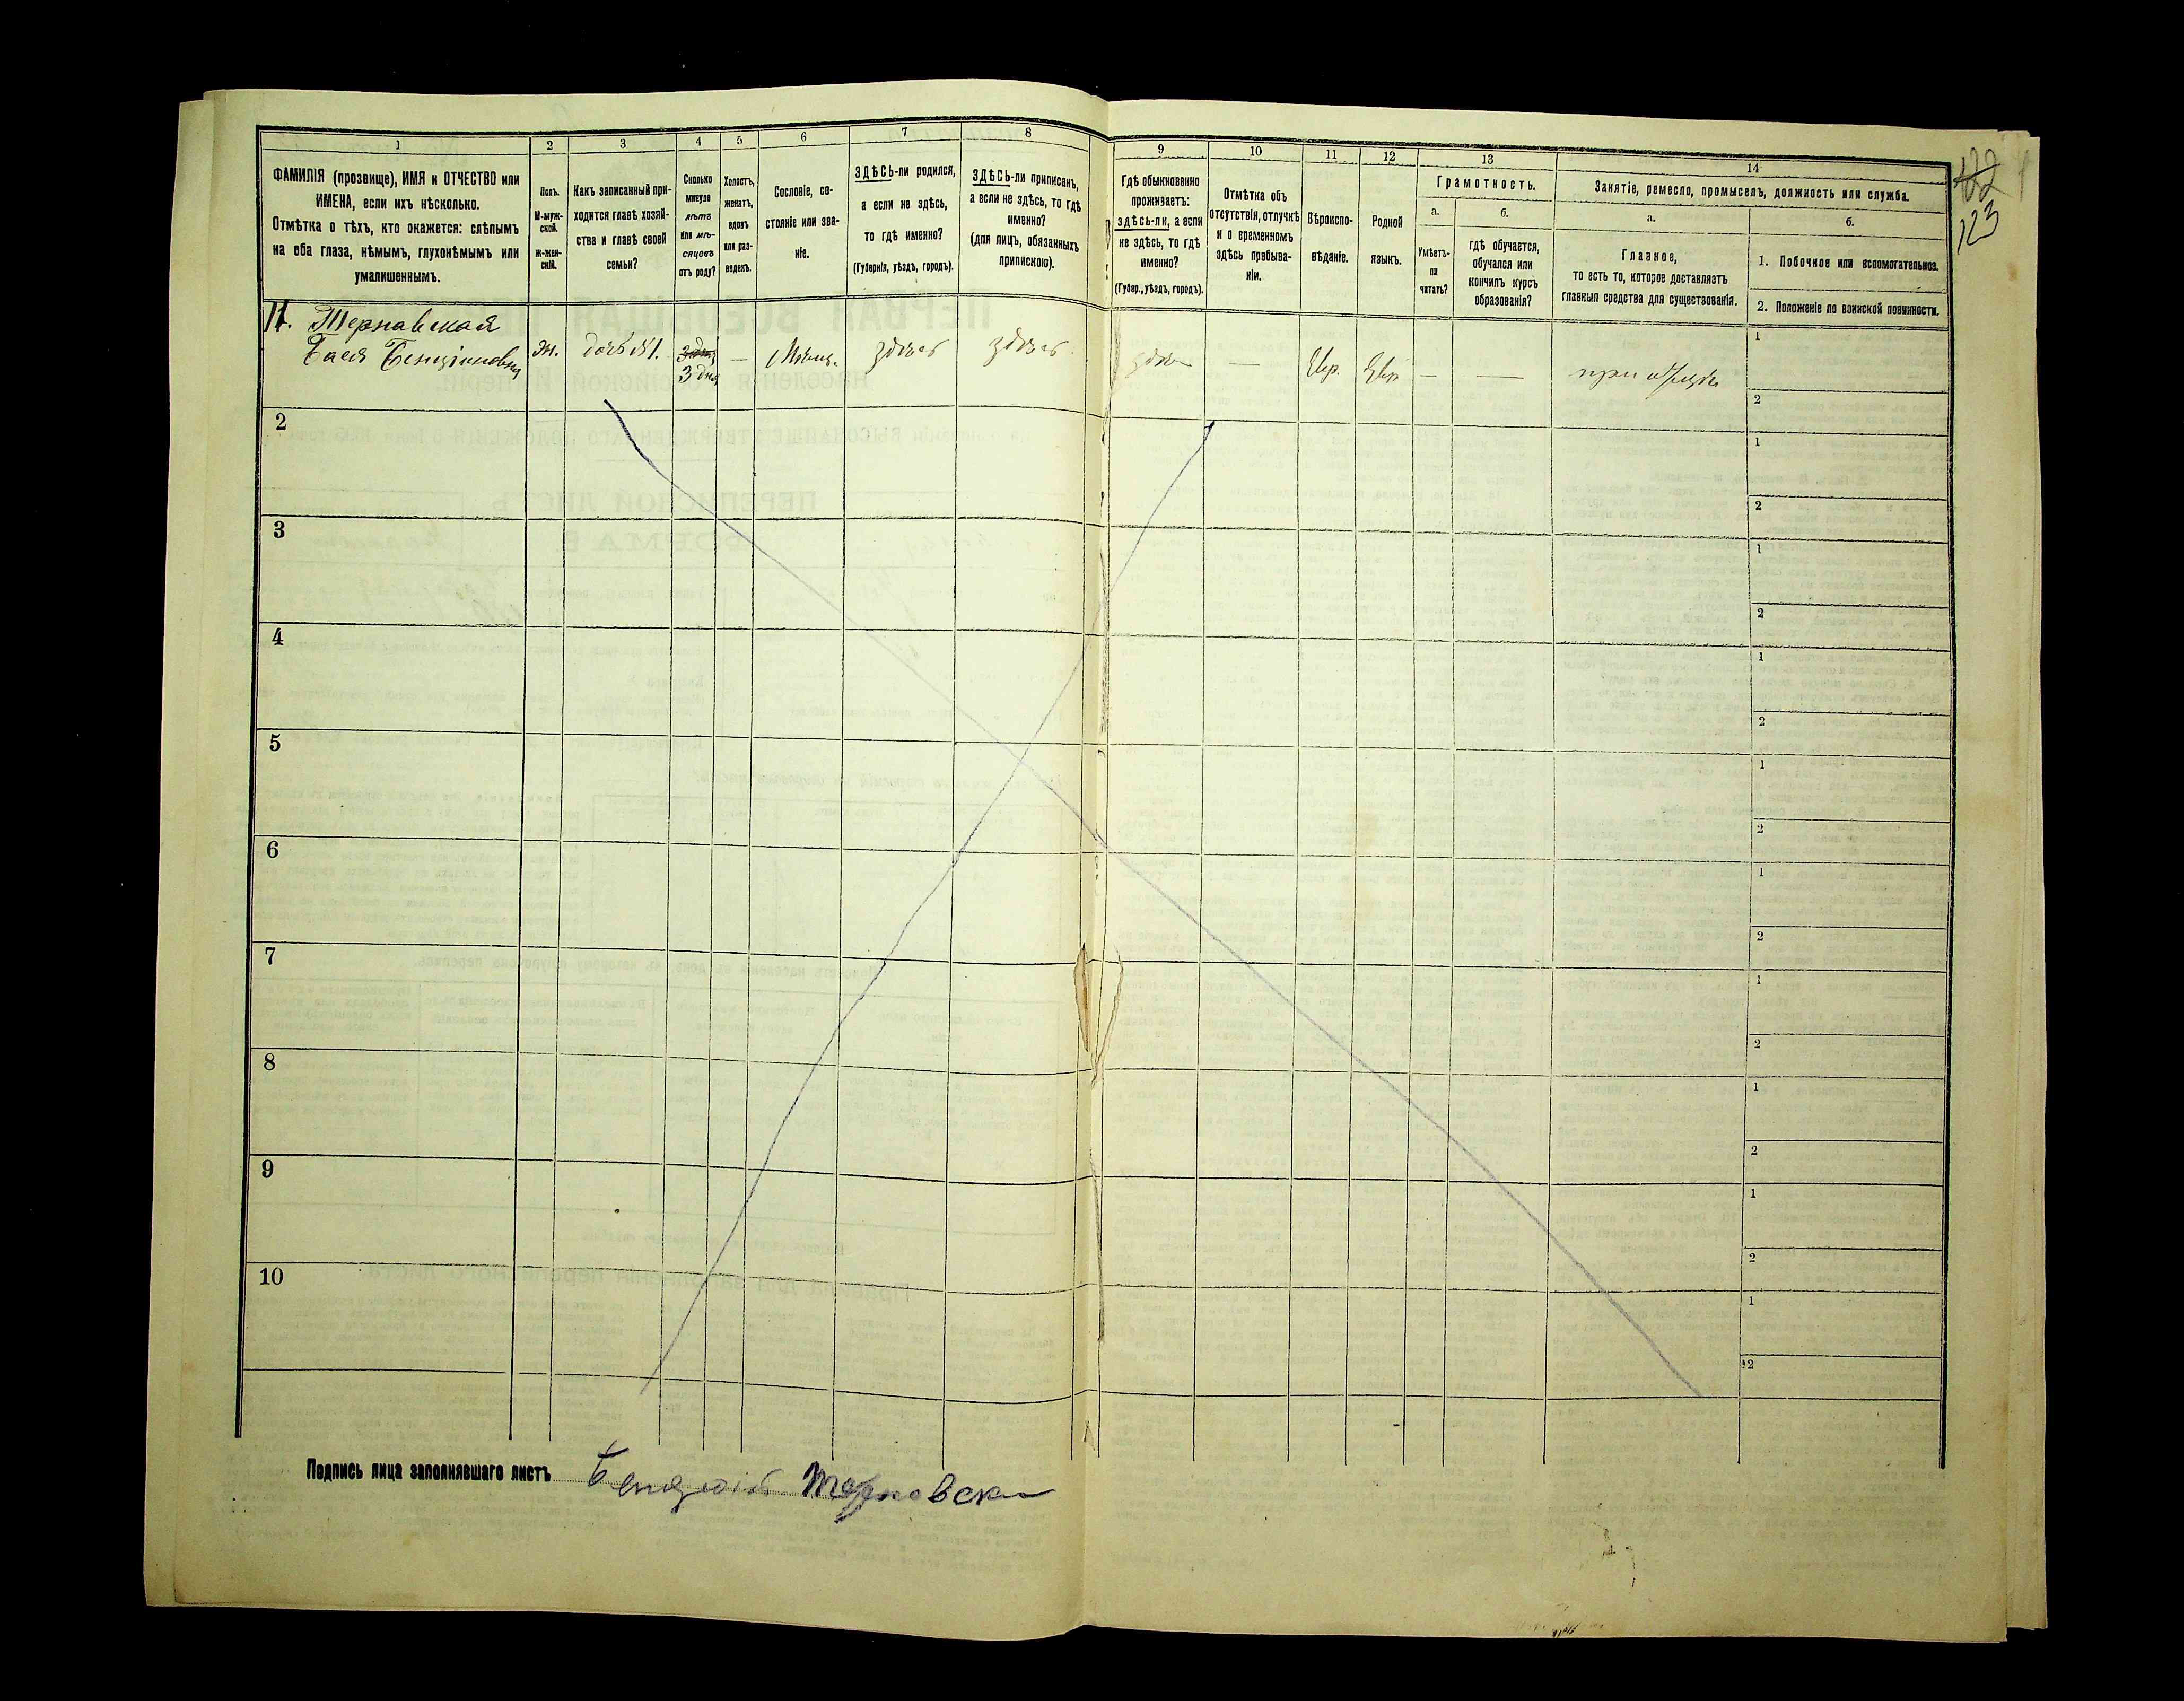 1
2
3
4
5
6
7
8
9
10
11
12
13
14
ФАМИЛІЯ (прозвище), ИМЯ и ОТЧЕСТВО или
ИМЕНА, если ихъ нѣсколько.
Отмѣтка о тѣхъ, кто окажется: слѣпымъ
на оба глаза, нѣмымъ, глухонѣмымъ или
умалишеннымъ.
Полъ.
М-муж-
ской.
Ж-жен-
скій.
Какъ записанный при-
ходится главѣ хозяй-
ства и главѣ своей
семьи?
Сколько
минуло
лѣтъ
или мѣ-
сяцевъ
отъ роду?
Холостъ,
женатъ,
вдовъ
или раз-
веденъ.
Сословіе, со-
стояніе или зва-
ніе.
ЗДѢСЬ-ли родился,
а если не здѣсь,
то гдѣ именно?
(Губернія, уѣздъ, городъ).
ЗДѢСЬ-ли приписанъ,
а если не здѣсь, то гдѣ
именно?
(для лицъ, обязанныхъ
припискою).
Гдѣ обыкновенно
проживаетъ:
здѣсь-ли, а если
не здѣсь, то гдѣ
именно?
(Губер., уѣздъ, городъ).
Отмѣтка объ
отсутствіи, отлучкѣ
и о временномъ
здѣсь пребыва-
ніи.
Вѣроиспо-
вѣданіе.
Родной
языкъ.
Грамотность.
а.
б.
Умѣетъ-
ли
читать?
гдѣ обучается,
обучался или
кончилъ курсъ
образованія?
Занятіе, ремесло, промыселъ, должность или служба.
а.
б.
Главное,
то есть то, которое доставляетъ
главныя средства для существованія.
1. Побочное или вспомогательное.
2. Положеніе по воинской повинности.
122
123
11. Тернавская
Бася Бенціоновна
Ж.
дочь
3 дня
—
Мѣщ.
здѣсь
здѣсь
здѣсь
—
Евр.
Евр.
—
—
при отцѣ
1
2
2
1
2
3
1
2
4
1
2
5
1
2
6
1
2
7
1
2
8
1
2
9
1
2
10
1
2
Подпись лица заполнявшаго листъ Бенціонъ Терновски